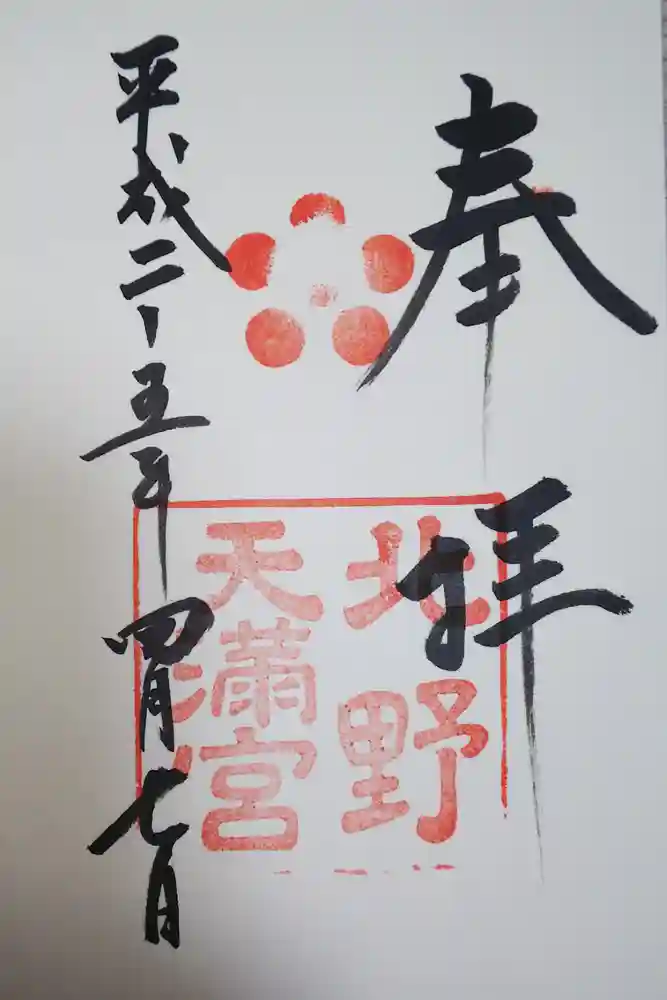 奉拝
北野
天滿宮
平成二十五年四月七日